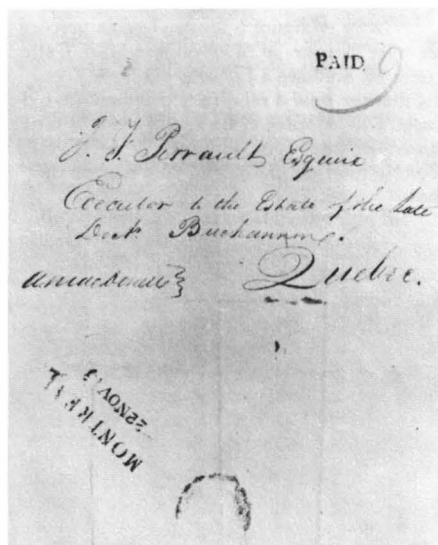 PAID 9
J. F. Perrault Esquire
Executor to the Estate of the Late
Doct. Buchannon.
Quebec.
MONTREAL
22 NOV.